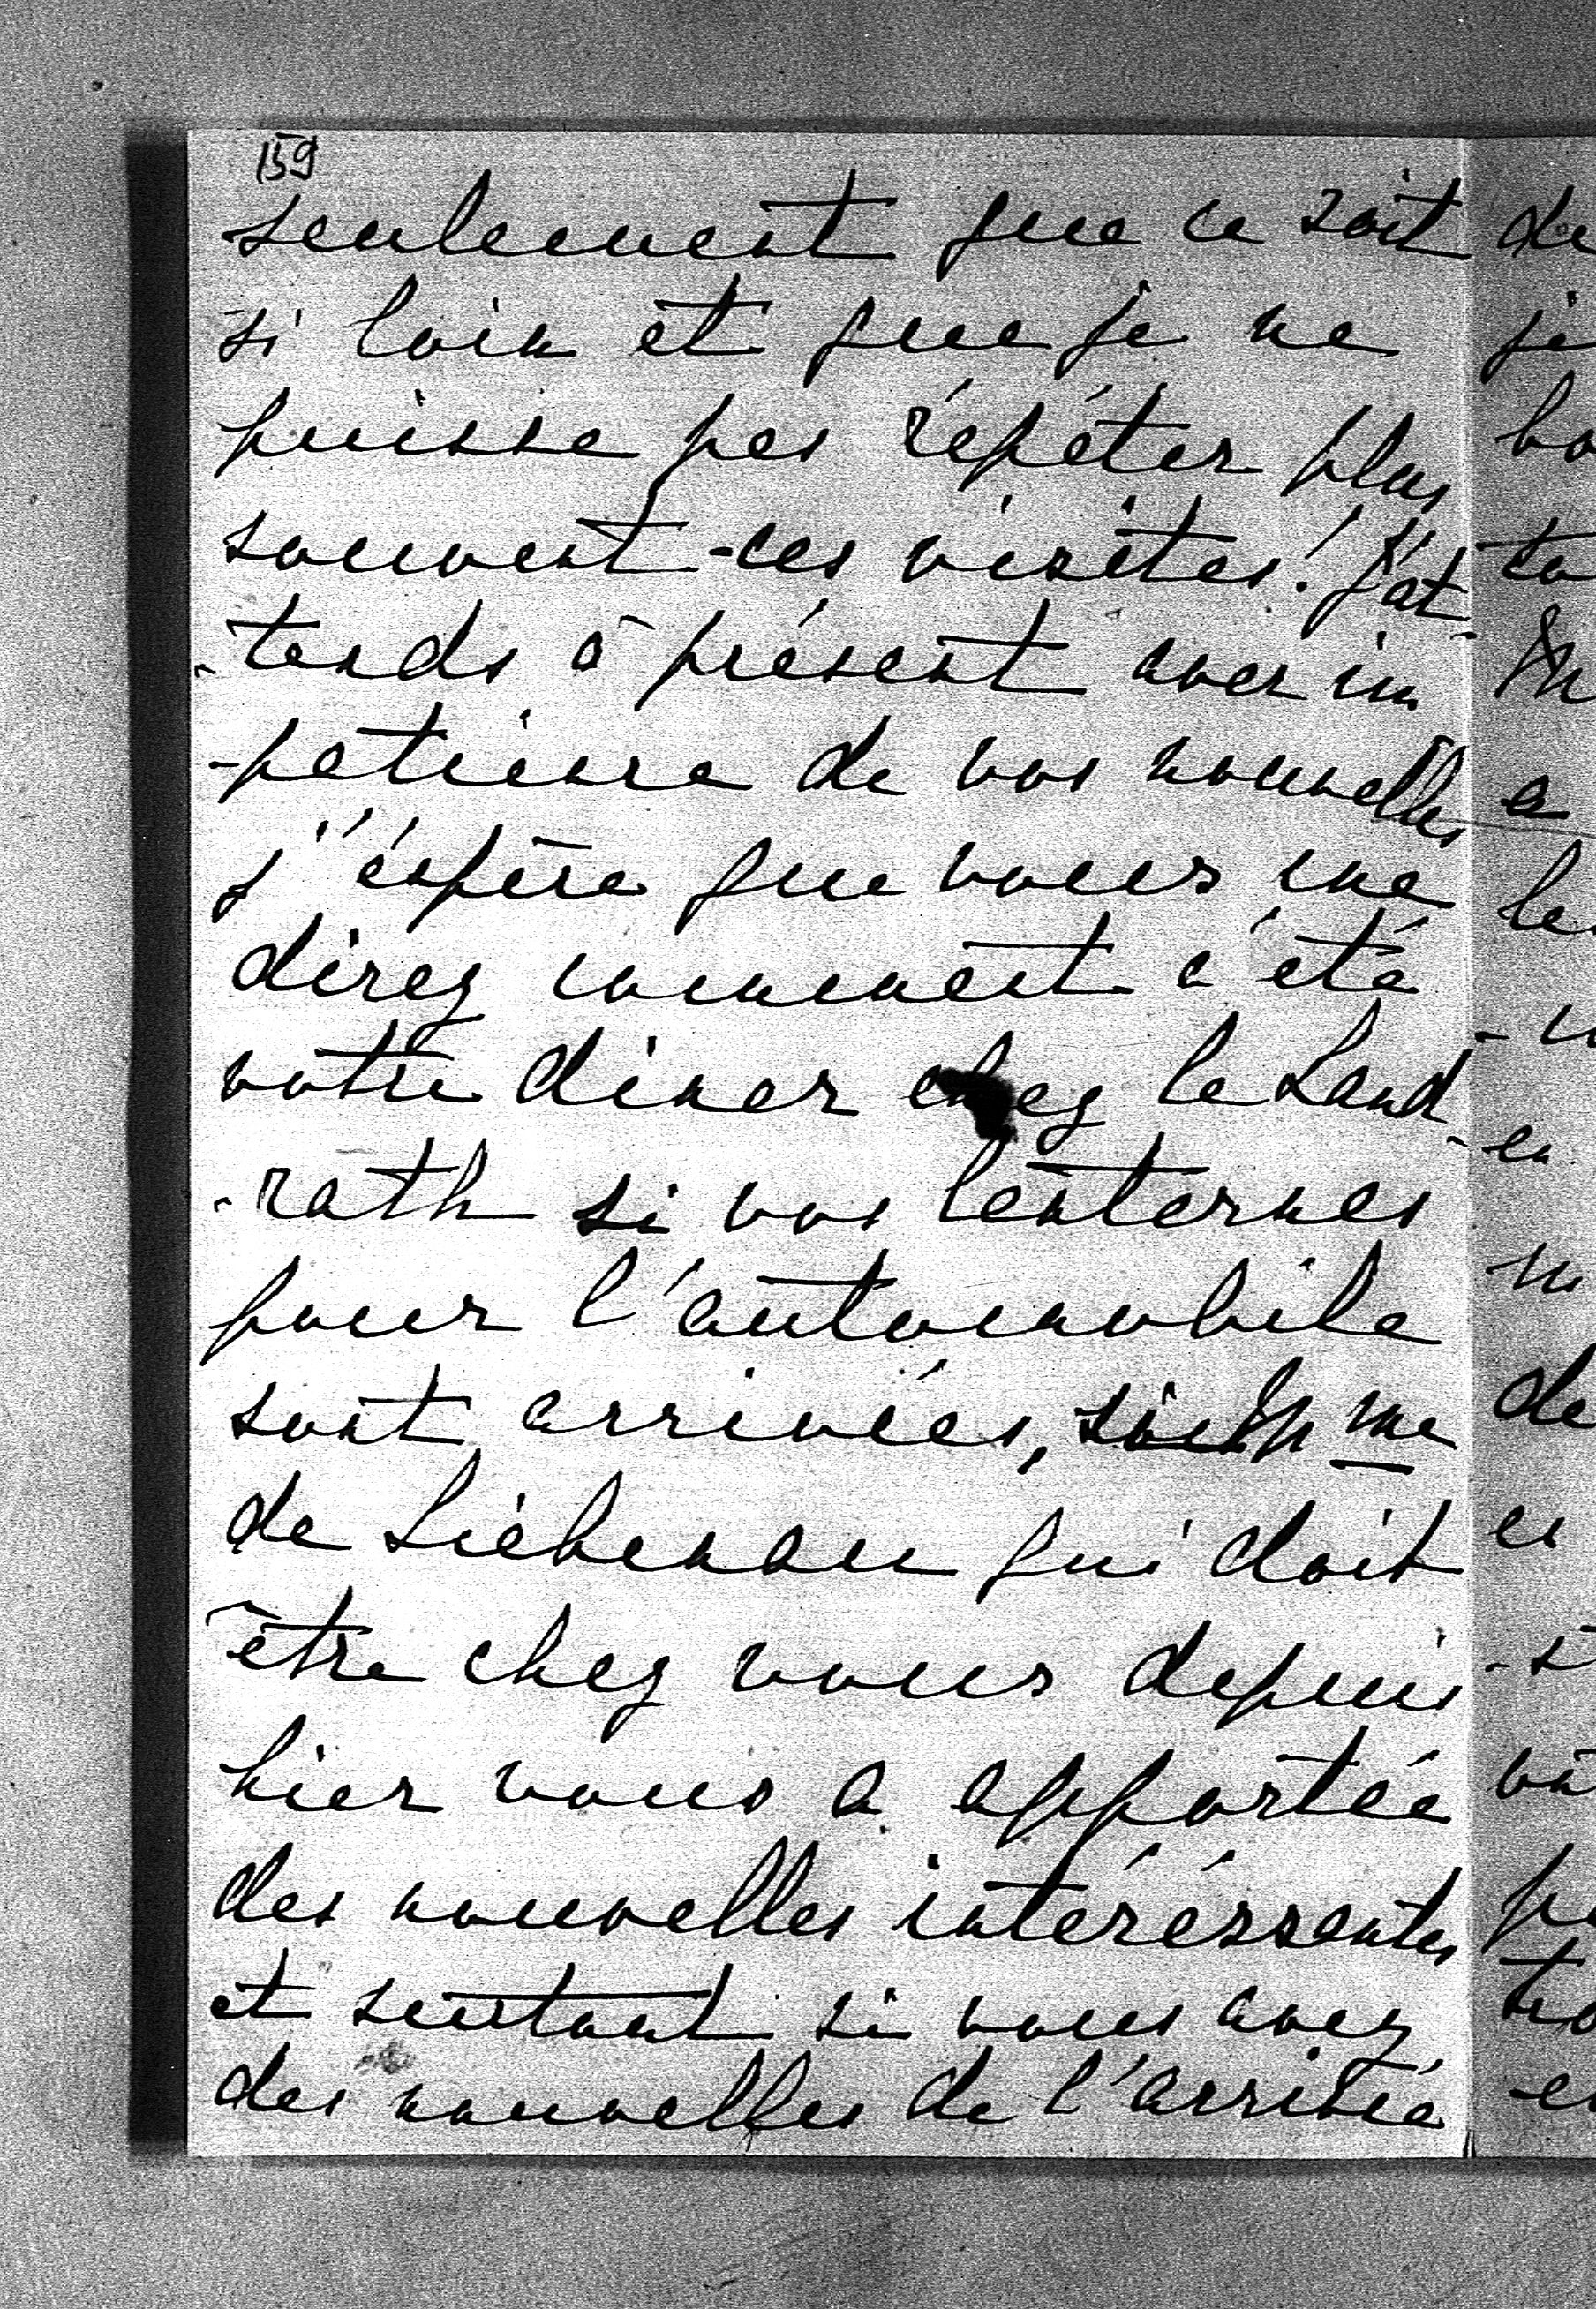 159
seulement que ce soit
si loin et que je ne
puisse pas répéter plus
souvent ces visites! J'at-
-tends à présent avec im
-patience de vos nouvelles
j'éspère que vous me
direz comment c'été
votre diner chez le Land-
-rath si vos lanternes
pour l'automobile
sont arrivées, si Mme
de Liebenau qui doit
être chez vous depuis
hier vous a apportée
des nouvelles intéréssantes
et surtout si vous avez
des nouvelles de l'arrivée